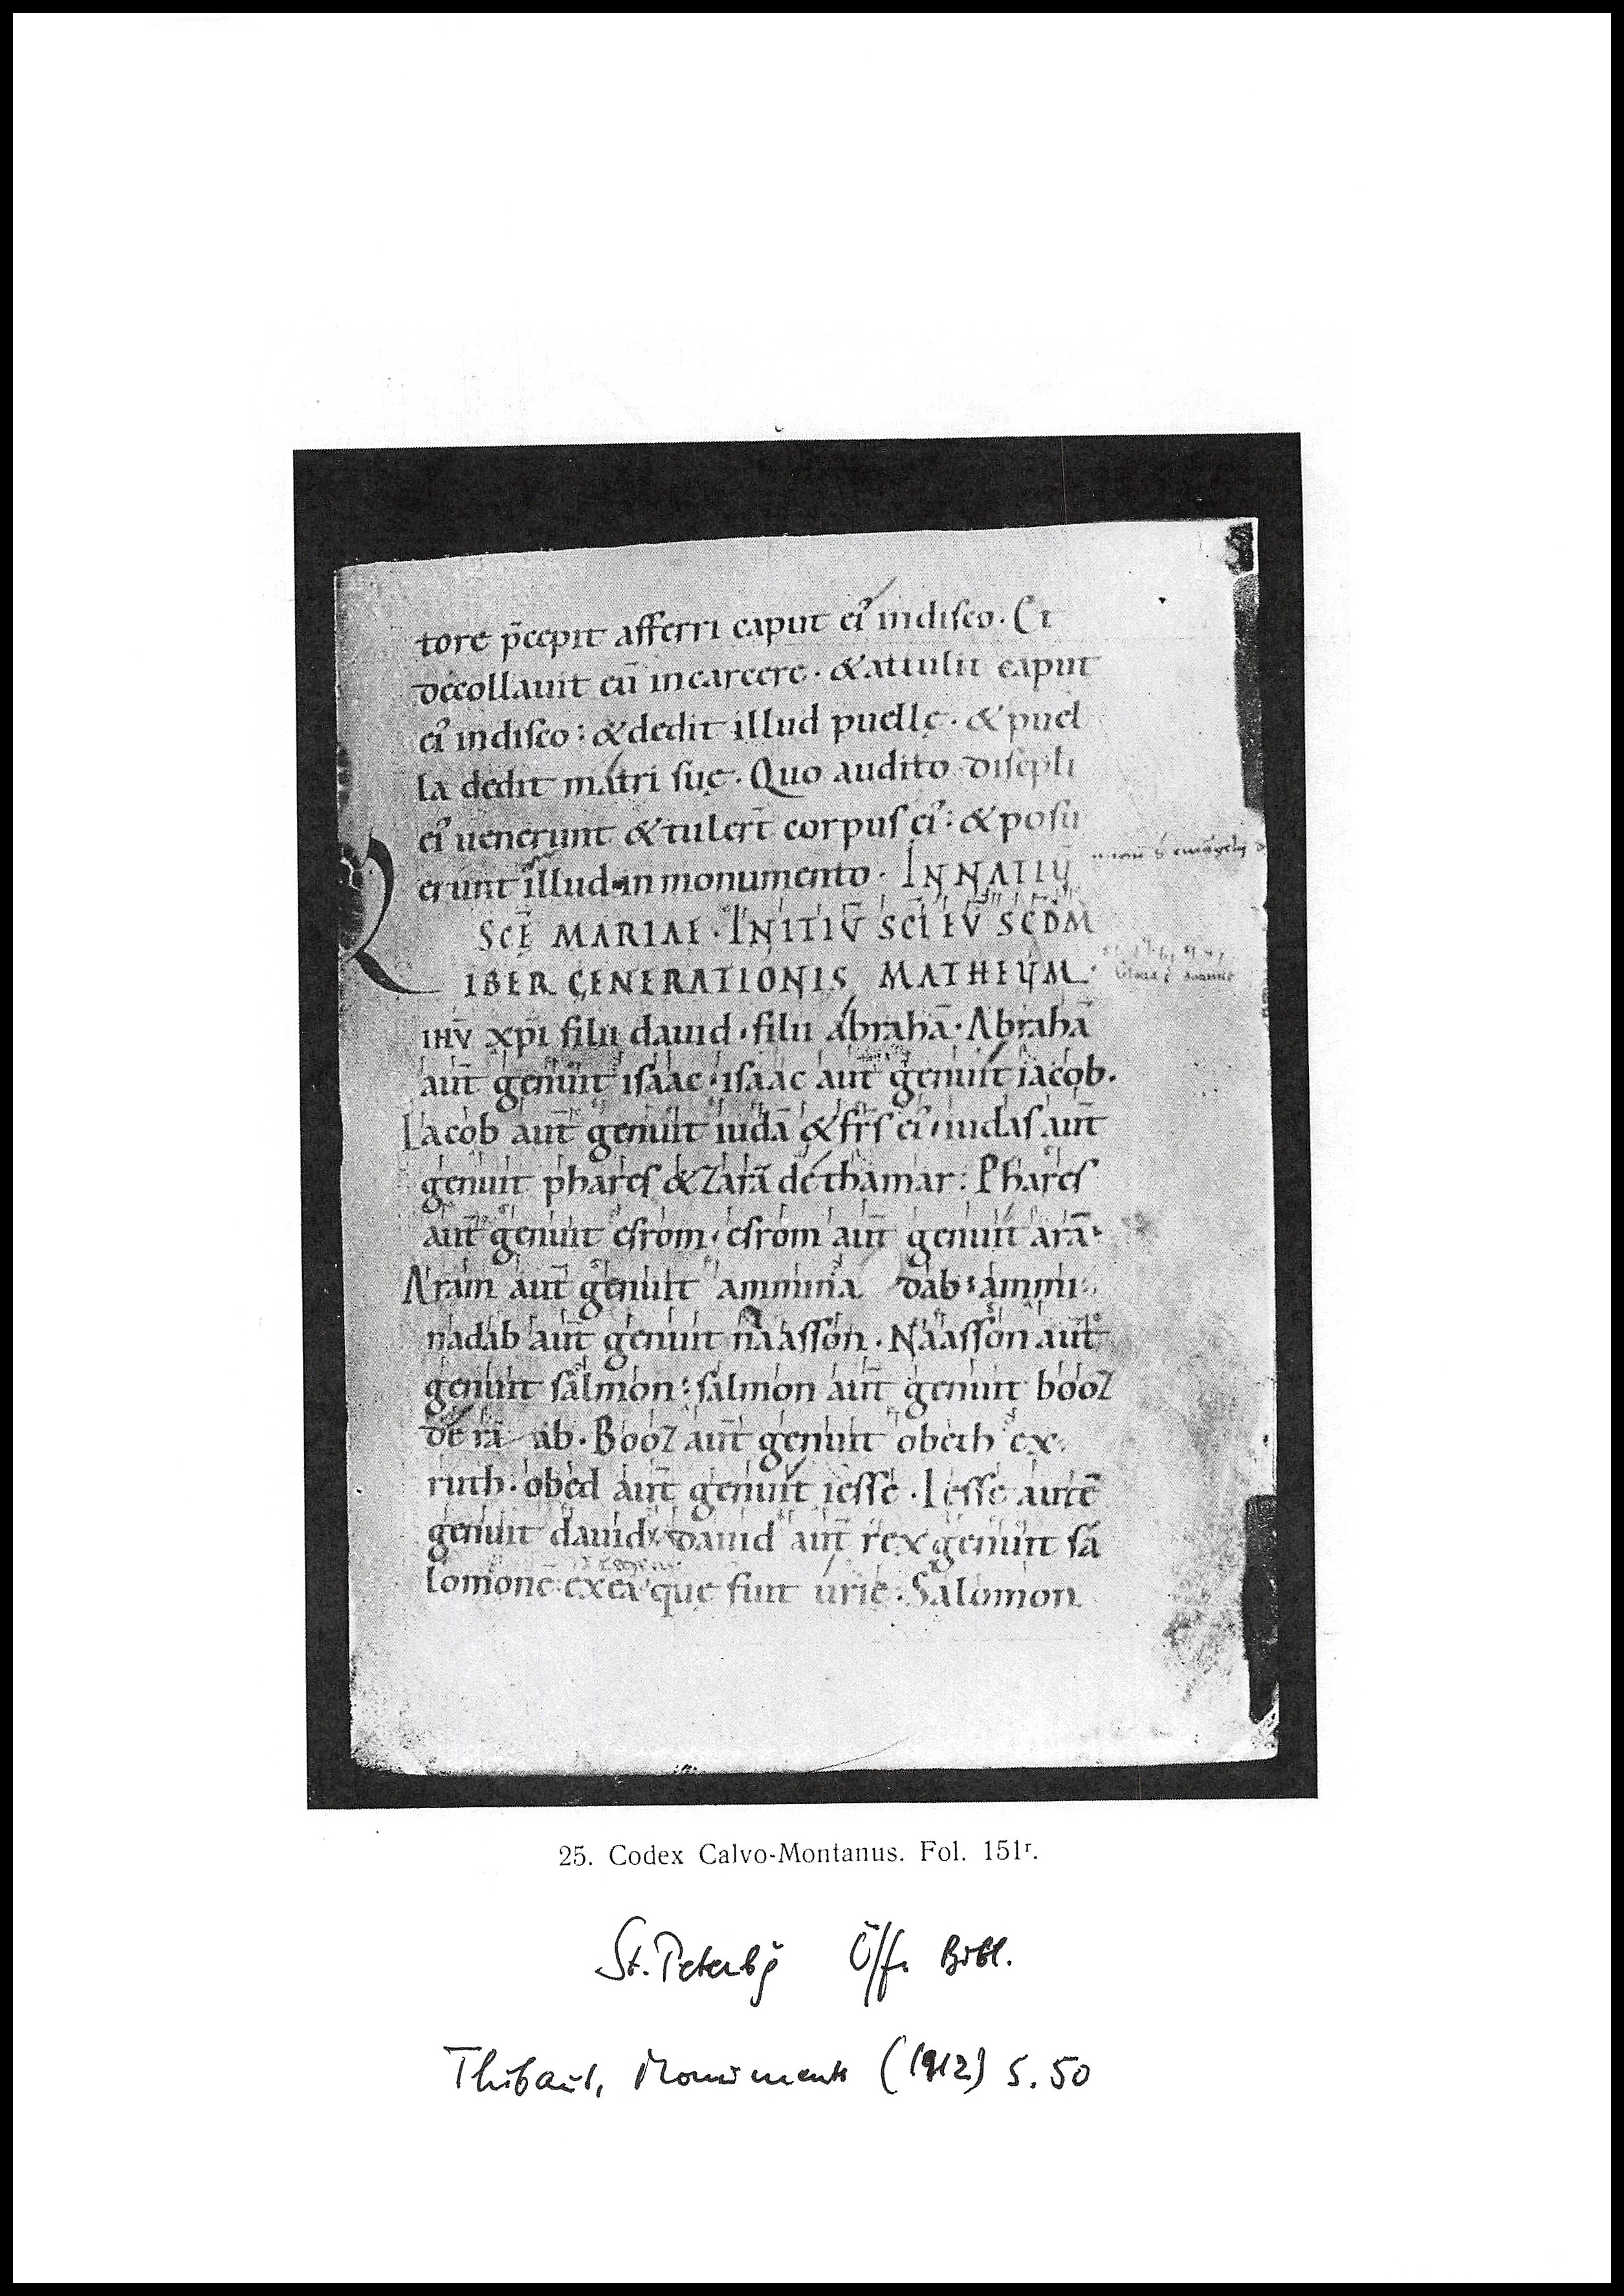 tore p̄cepit afferri caput ei᾿ indisco. Et
decollauit eū incarcere. &attulit caput
ei᾿ indisco: &dedit illud puellę. &puel
la dedit matri suę. Quo audito discipli
ei᾿ uenerunt &tulert̄ corpus ei᾿: &posu
erunt illud in monumento. IN NATIṼ
SCĒ MARIAE. INITIṼ SCI EṼ SCDM
IBER GENERATIONIS MATHEUM.
IHṼ xp̄i filii dauid. filii abrahā. Abrahā
aut̄ genuit isaac. isaac aut̄ genuit iacob.
Iacob aut̄ genuit iudā &fr̄s ei᾿. iudas aut̄
genuit phares &zarā dethamar: Phares
aut̄ genuit esrom. esrom aut̄ genuit arā.
Aram aut̄ genuit ammina dab: ammi
nadab aut̄ genuit naasson. Naasson aut̄
genuit salmon: salmon aut̄ genuit booz
de ra ab. Booz aut̄ genuit obeth ex
ruth. obed aut̄ genuit iesse. Iesse autē
genuit dauid. dauid aut̄ rex genuit sa
lomone exea quę fuit urię. Salomon
25. Codex Calvo-Montanus. Fol. 151r.
St. Petersbg Öff. Bibl.
Thibaut, Monuments (1912) S. 50